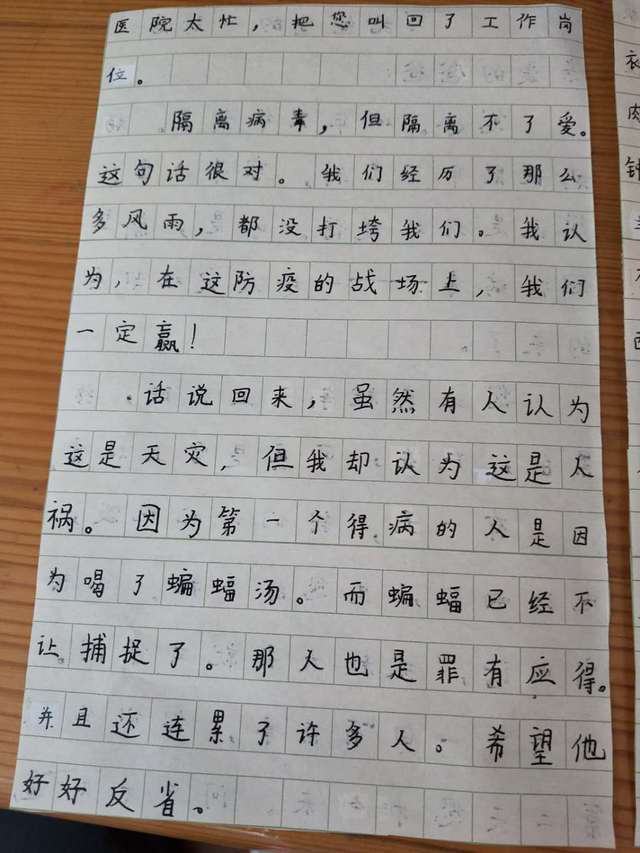 医院太忙，把您叫回了工作岗
位。
隔离病毒，但隔离不了爱。
这句话很对。我们经历了那么
多风雨，都没打垮我们。我认
为，在这防疫的战场上，我们
一定赢！
话说回来，虽然有人认为
这是天灾，但我却认为这是人
祸。因为第一个得病的人是因
为喝了蝙蝠汤。而蝙蝠已经不
让捕捉了。那人也是罪有应得。
并且还连累了许多人。希望他
好好反省。
衣
肉
钟